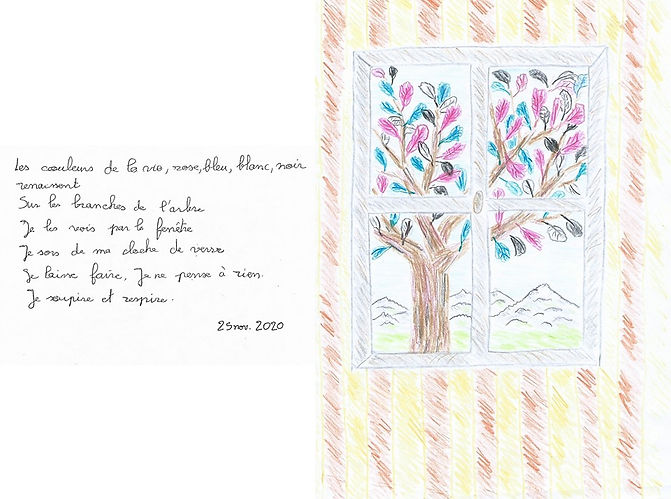 Les couleurs de la vie, rose, bleu, blanc, noir
renaissent
Sur les branches de l'arbre
Je les vois par la fenêtre
Je sors de ma cloche de verre
Je laisse faire, Je ne pense à rien.
Je soupire et respire.
25 nov. 2020